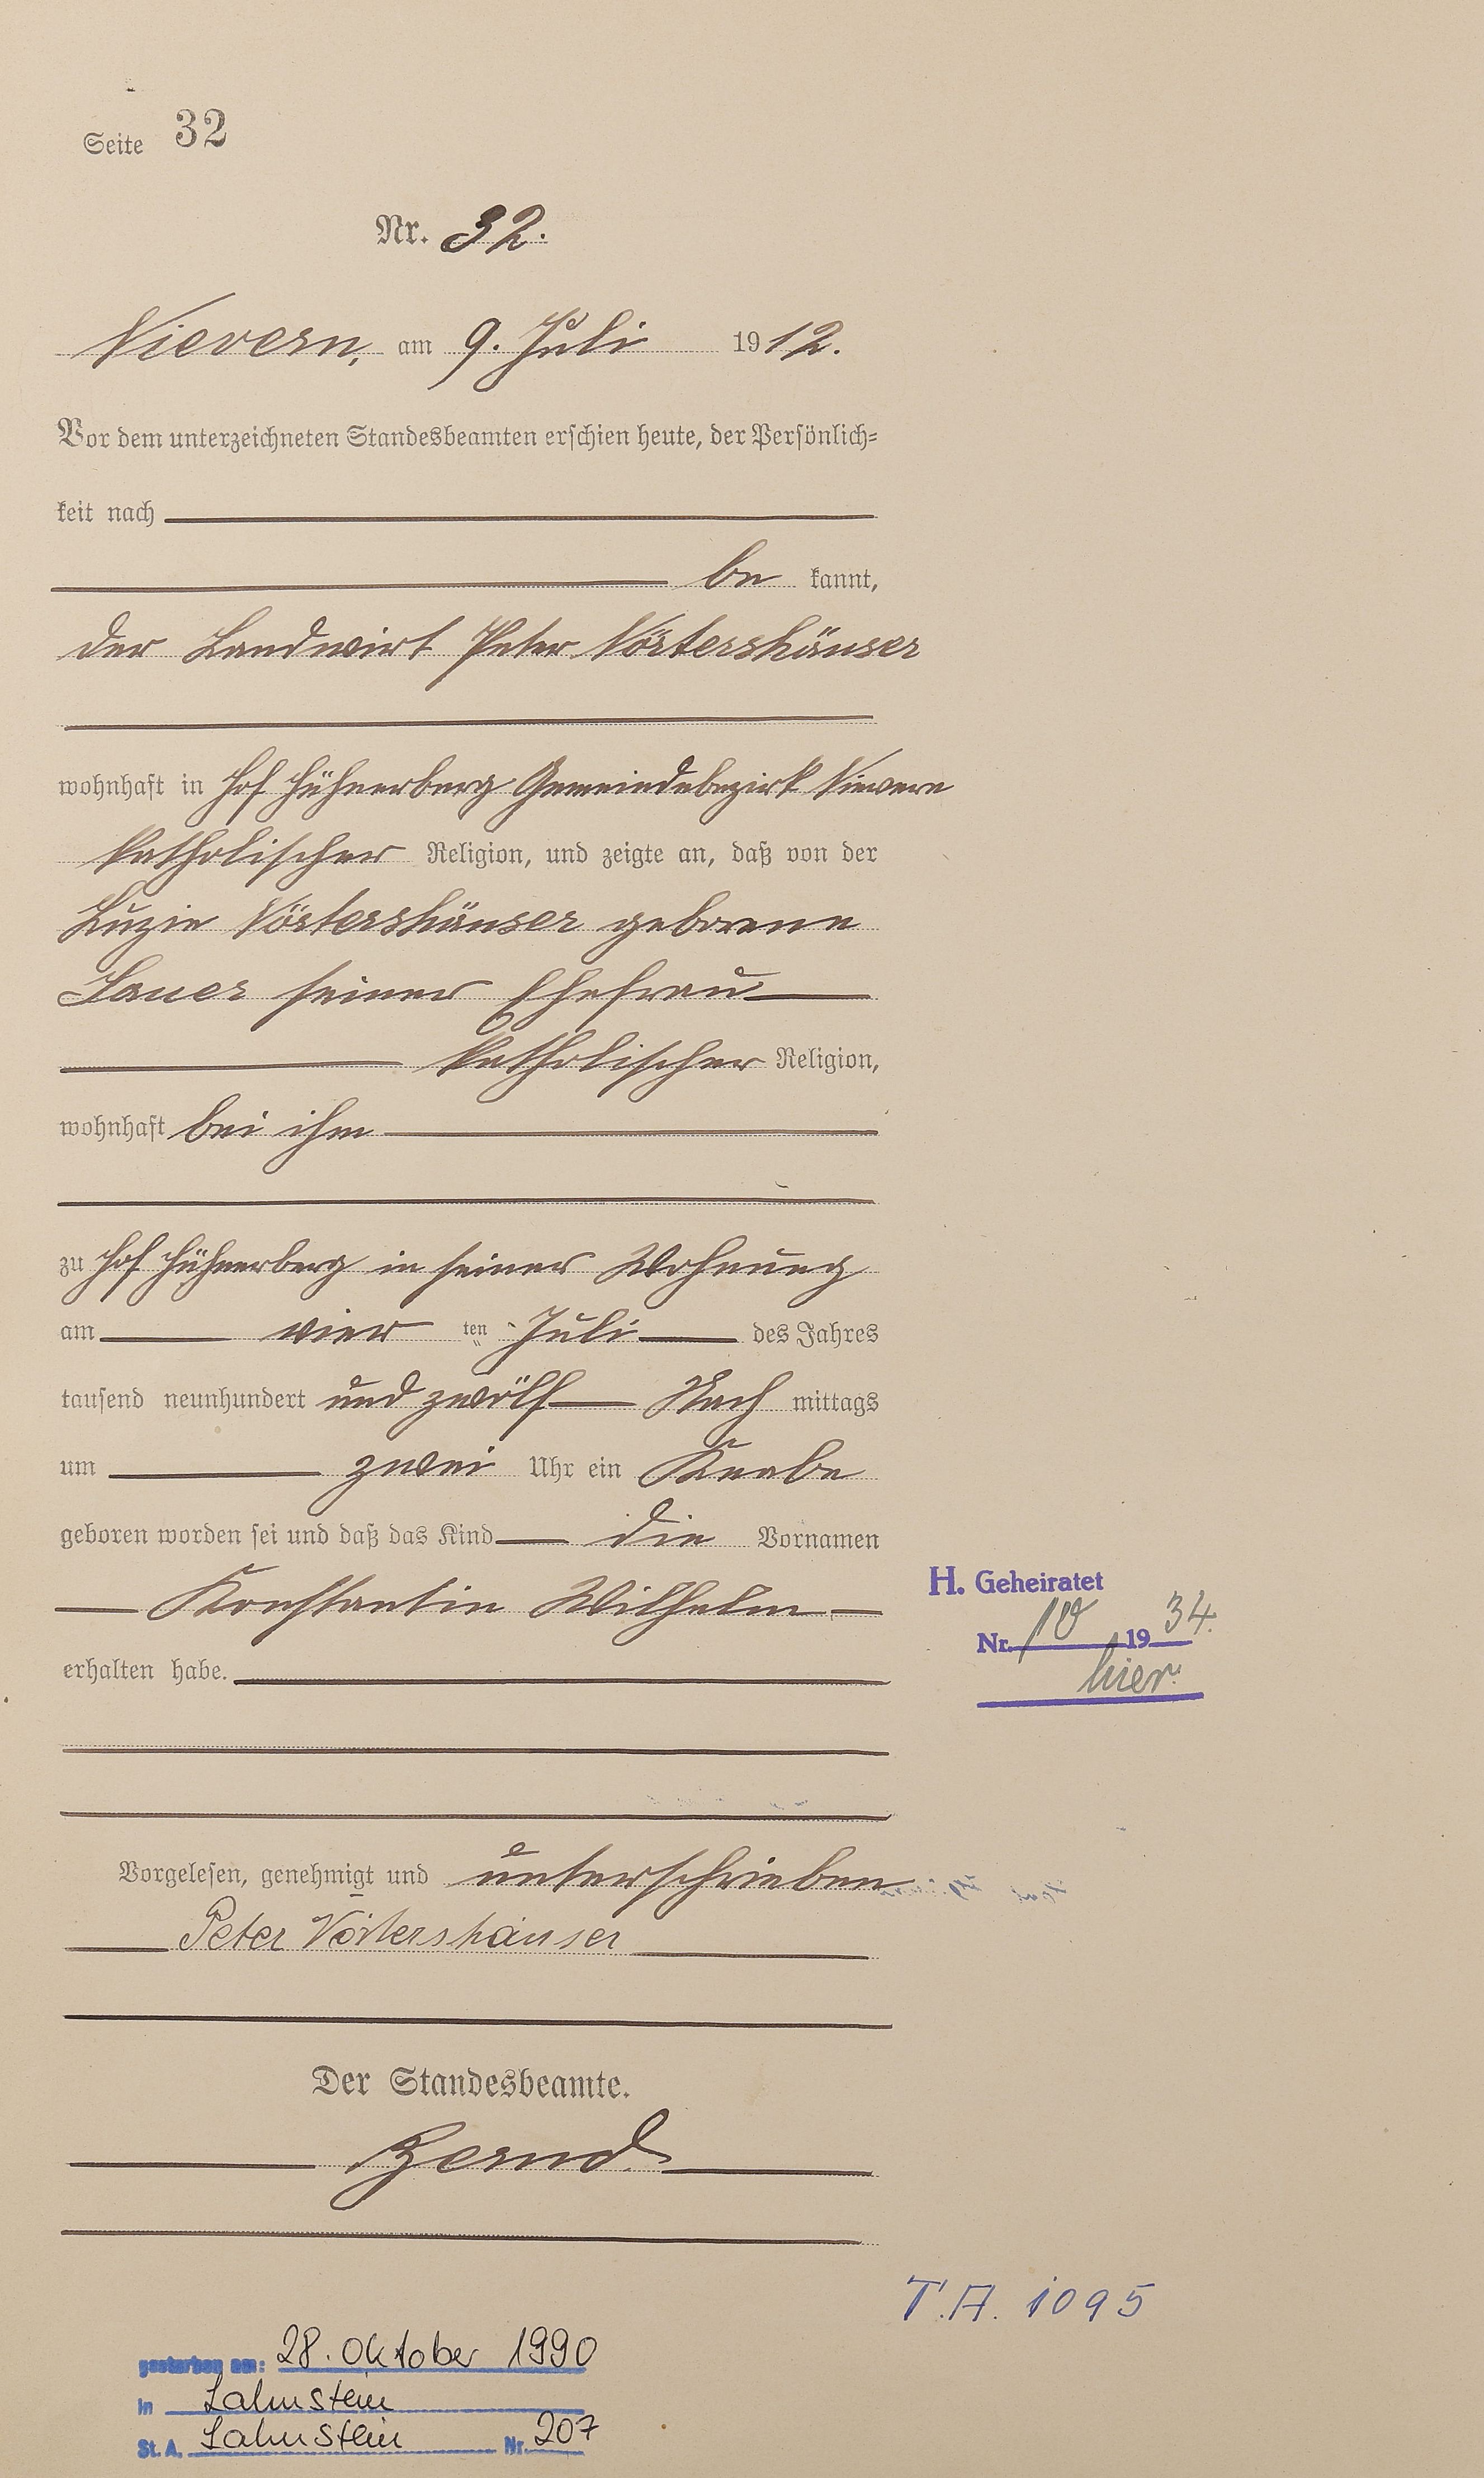 Seite 32
Nr. 32.
Nievern, am 9. Juli 1912.
Vor dem unterzeichneten Standesbeamten erschien heute, der Persönlich-
keit nach
be kannt,
der Landwirt Peter Nörtershäuser
wohnhaft in Hof Hühnerberg Gemeindebezirk Nievern
katholischer Religion, und zeigte an, daß von der
Luzie Nörtershäuser geborene
Sauer seiner Ehefrau
katholischer Religion,
wohnhaft bei ihm
zu Hof Hühnerberg in seiner Wohnung
am vier ten Juli des Jahres
tausend neunhundert und zwölf Nach mittags
um zwei Uhr ein Knabe
geboren worden sei und daß das Kind die Vornamen
Konstantin Wilhelm
erhalten habe.
H. Geheiratet
Nr. 10 1934.
hier.
Vorgelesen, genehmigt und unterschrieben
Peter Nörtershäuser
Der Standesbeamte.
T.A. 1095
gestorben am: 28. Oktober 1990
in Lahnstein
St. A. Lahnstein Nr. 207